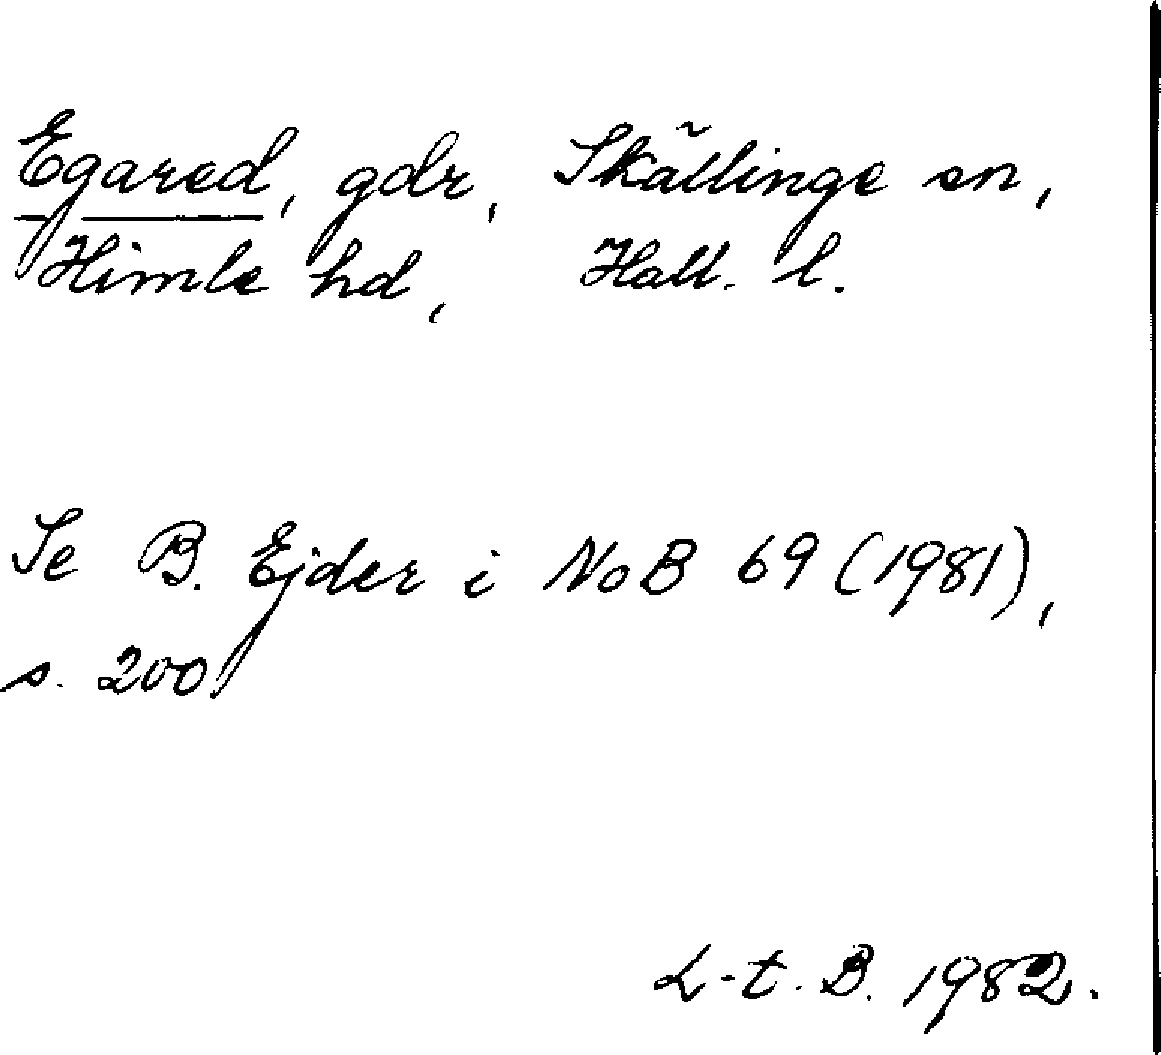 Egared, gdr, Skällinge sn,
Himle hd, Hall. l.
Se B. Ejder i NoB 69 (1981),
s. 200
L-t. B. 1982.